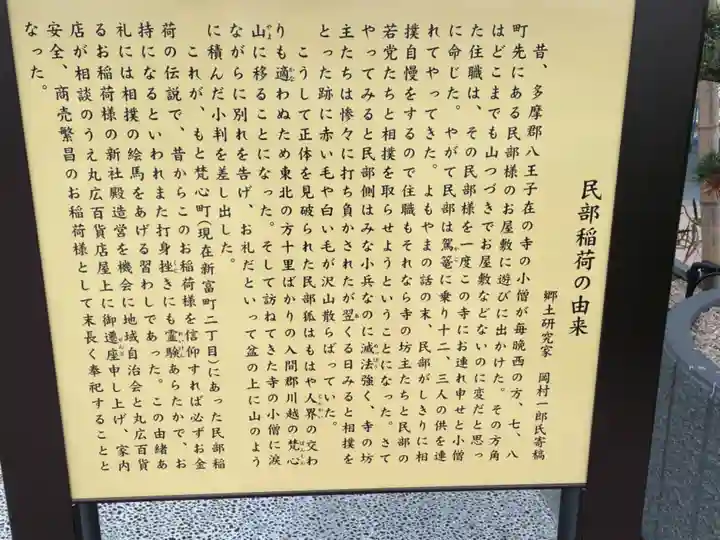 民部稲荷の由来
郷土研究家 岡村一郎氏寄稿
昔、多摩郡八王子在の寺の小僧が毎晩西の方、七、八
町先にある民部様のお屋敷に遊びに出かけた。その方角
はどこまでも山つづきでお屋敷などないのに変だと思っ
た住職は、その民部様を一度この寺にお連れ申せと小僧
に命じた。やがて民部は駕篭に乗り十二、三人の供を連
れてやってきた。よもやまの話の末、民部がしきりに相
撲自慢をするので住職もそれなら寺の坊主たちと民部の
若党たちと相撲を取らせようということになった。さて
やってみると民部側はみな小兵なのに滅法強く、寺の坊
主たちは惨々に打ち負かされたが翌くる日みると相撲を
とった跡に赤い毛や白い毛が沢山散らばっていた。
こうして正体を見破られた民部狐はもはや人界の交わ
りも適わぬため東北の方十里ばかりの入間郡川越の梵心
山に移ることになった。そして訪ねてきた寺の小僧に涙
ながらに別れを告げ、お札だといって盆の上に山のよう
に積んだ小判を差し出した。
これが、もと梵心町(現在新富町二丁目)にあった民部稲
荷の伝説で、昔からこのお稲荷様を信仰すれば必ずお金
持になるといわれまた打身挫きにも霊験あらたかで、お
礼には相撲の絵馬をあげる習わしであった。この由緒あ
るお稲荷様の新社殿造営を機会に地域自治会と丸広百貨
店が相談のうえ丸広百貨店屋上に御遷座申し上げ、家内
安全、商売繁昌のお稲荷様として末長く奉祀することと
なった。